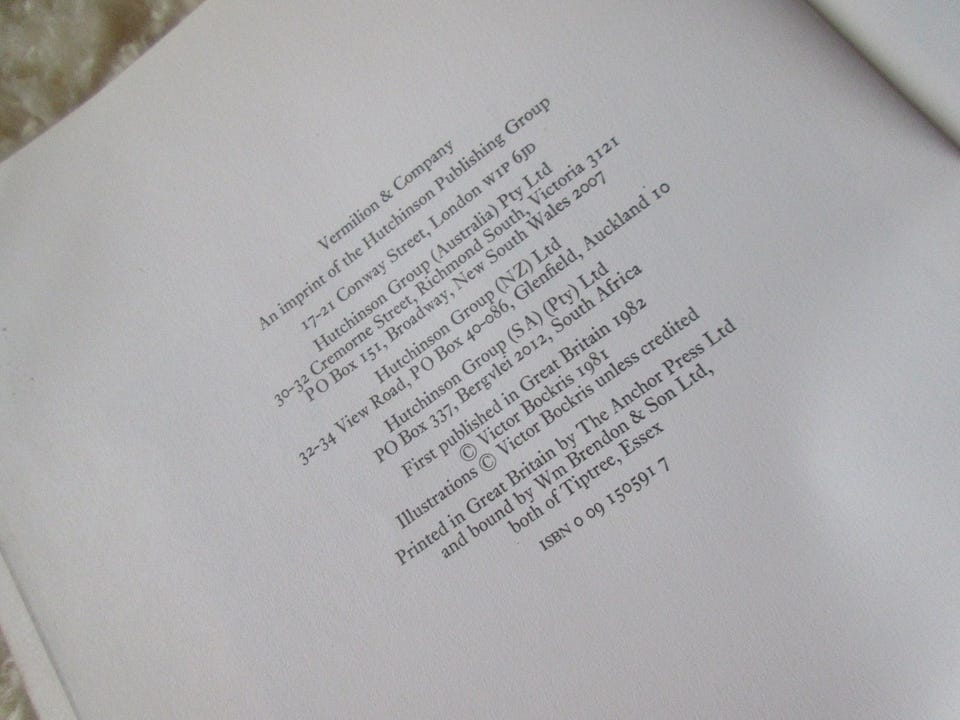 Vermilion & Company
An imprint of the Hutchinson Publishing Group
17-21 Conway Street, London W1P 6JD
Hutchinson Group (Australia) Pty Ltd
30-32 Cremorne Street, Richmond South, Victoria 3121
PO Box 151, Broadway, New South Wales 2007
Hutchinson Group (NZ) Ltd
32-34 View Road, PO Box 40-086, Glenfield, Auckland 10
Hutchinson Group (SA) (Pty) Ltd
PO Box 337, Bergvlei 2012, South Africa
First published in Great Britain 1982
© Victor Bockris 1981
Illustrations © Victor Bockris unless credited
Printed in Great Britain by The Anchor Press Ltd
and bound by Wm Brendon & Son Ltd,
both of Tiptree, Essex
ISBN 0 09 150591 7